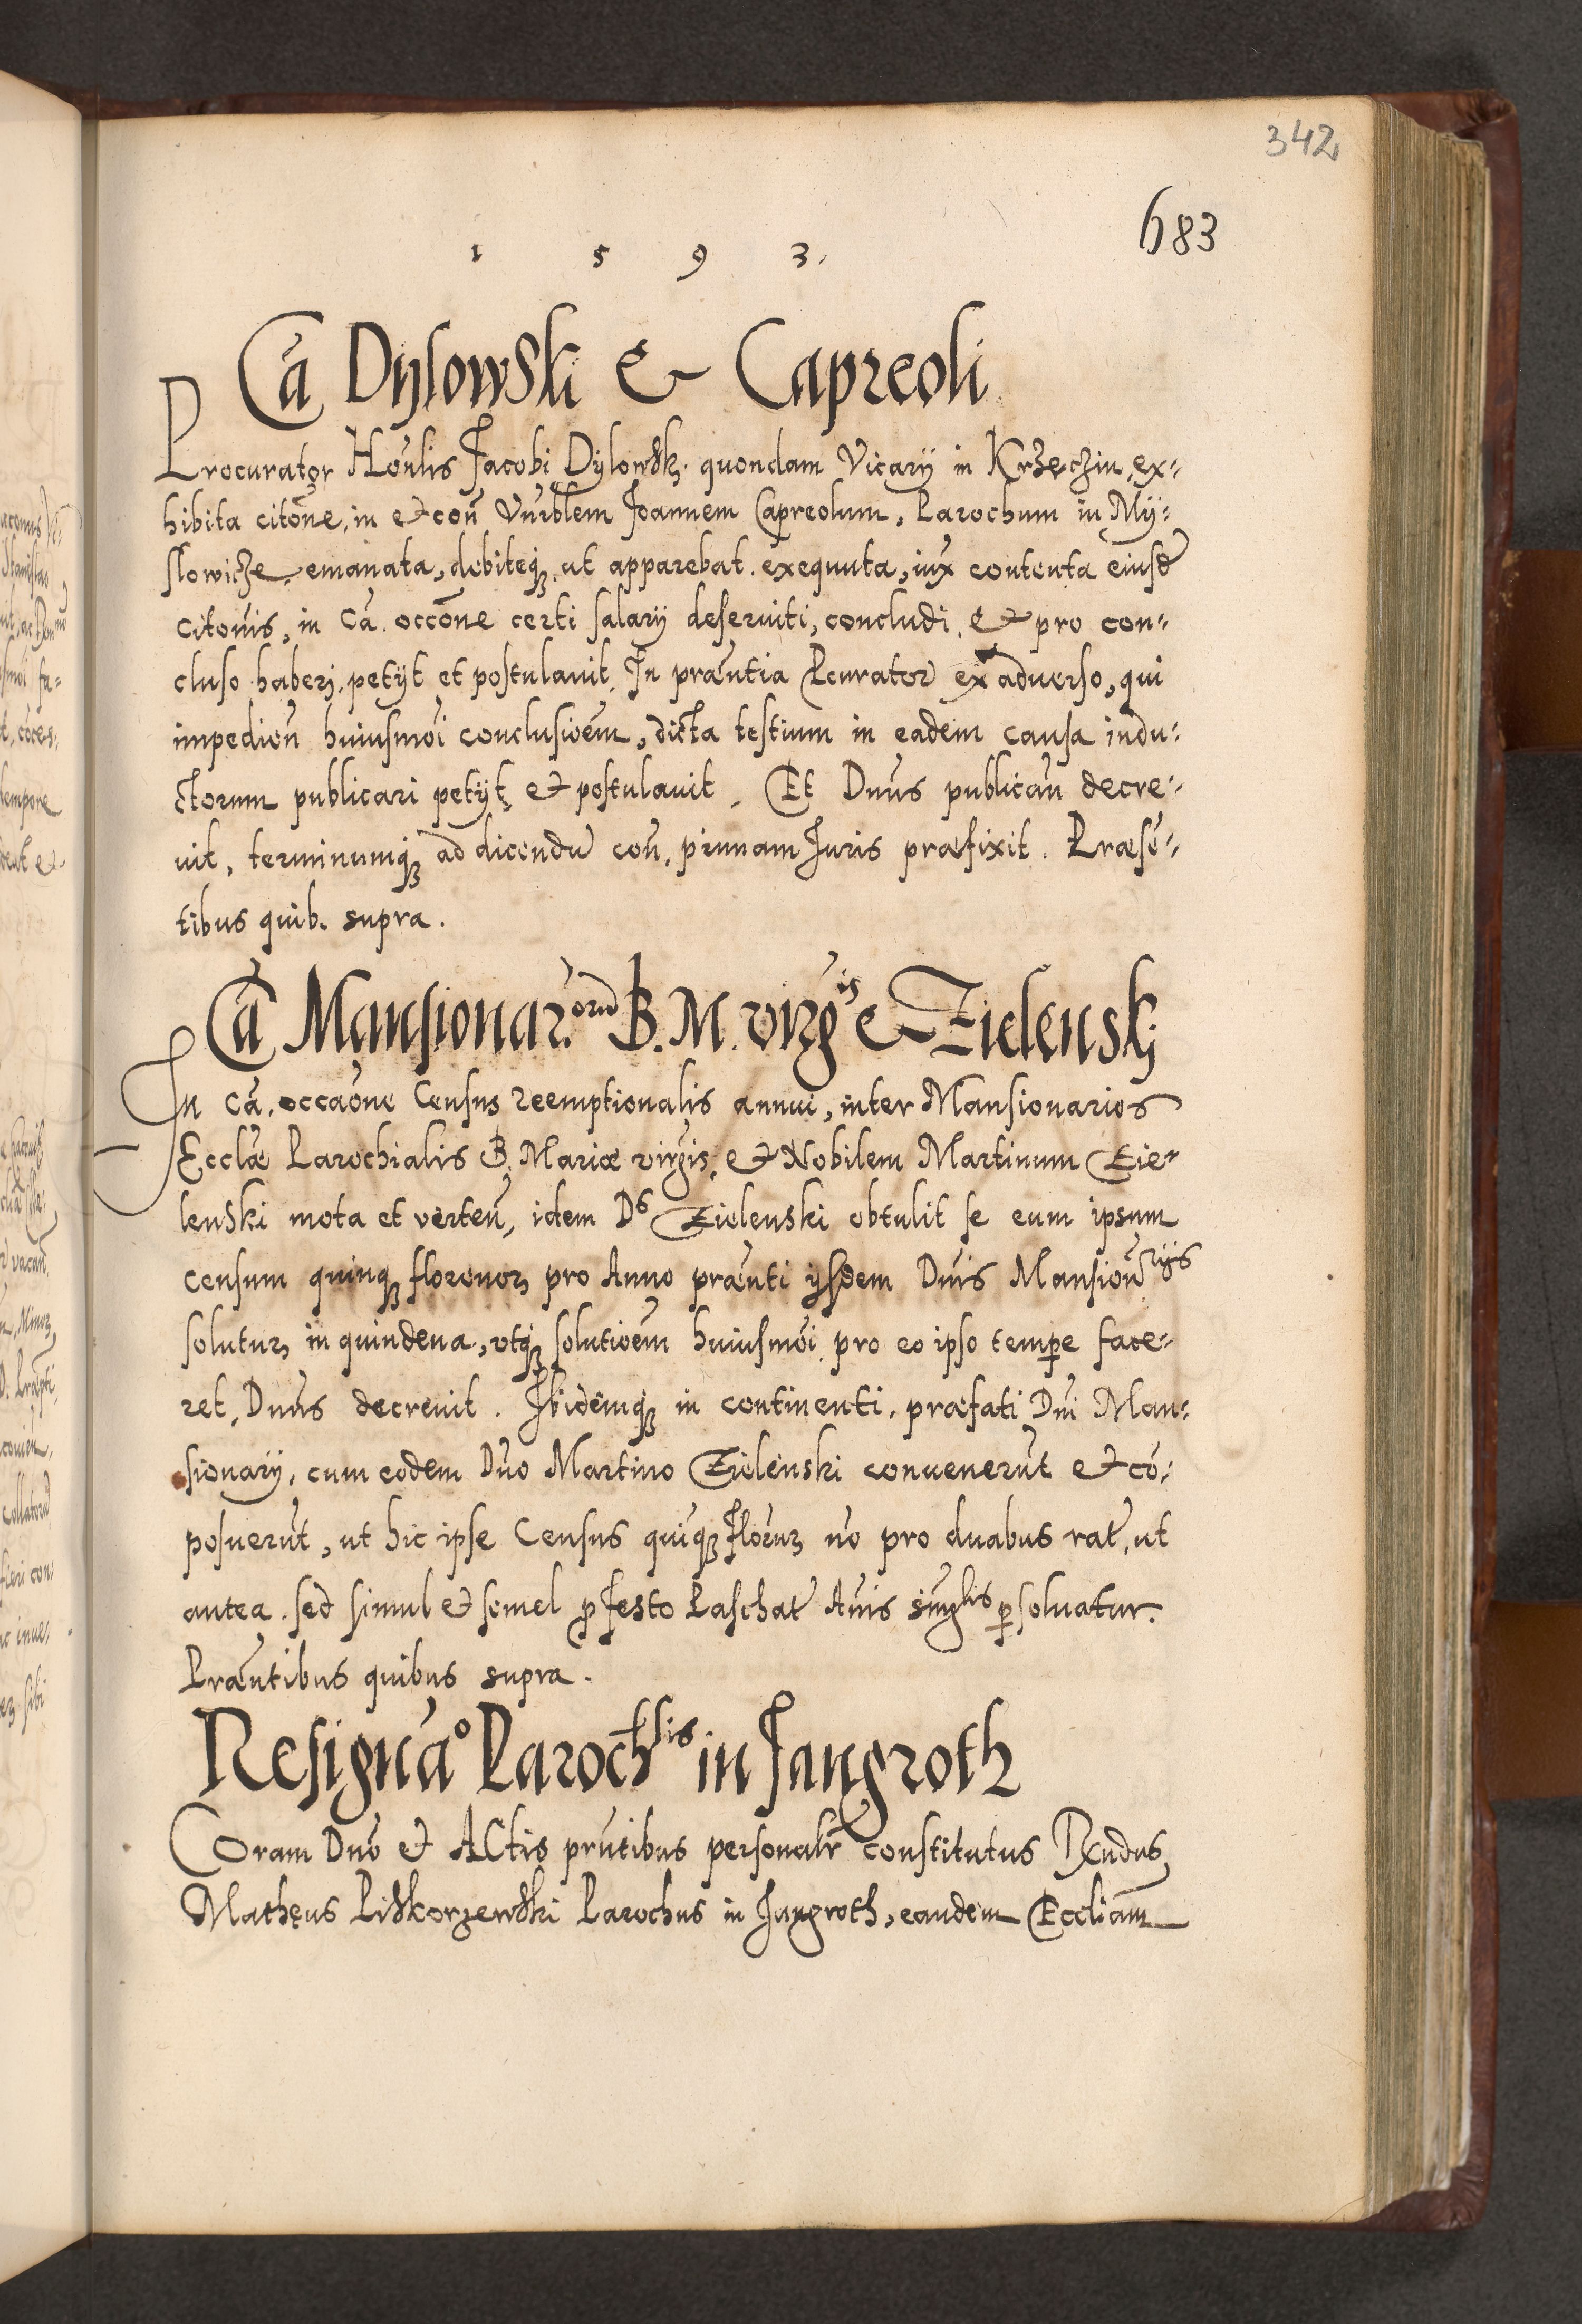 342
683
1 5 9 3.
Cā Dylowski & Capreoli
Procurator Honlis Jacobi Dylowsk. quondam Vicarÿ in Krzęczin, ex-
hibita citōne, in et con Vnrblem Joannem Capreolum, Parochum in Mÿ-
slowicze emanata, debiteq3, ut apparebat. exequuta, iux contenta eiusd
citonis, in cā. occōne certi salarÿ deseruiti, concludi, et pro con-
cluso haberj, petÿt et postulauit, In prāntia Pcurator ex aduerso, qui
impedien huiusmoi conclusioēm, dicta testium in eadem causa indu-
ctorum publicari petÿt, et postulauit. Et Dnus publican decre-
uit, terminumq3 ad dicendū con, primam Juris præfixit. Præsē-
tibus quib. supra.
Cā Mansionar.orū B. M. virgis & Zielenskj
In cā. occaōne Census reemptionalis annui, inter Mansionarios
Ecclæ Parochialis B. Mariæ virgis, et Nobilem Martinum Zie-
lenski mota et verten, idem Ds Zielenski obtulit se eum ipsum
censum quinq3 florenor pro Anno prænti ÿsdem Dnis Mansionrÿs
solutur in quindena, utq3 solutioēm huiusmoi pro eo ipso tempe face-
ret, Dnus decreuit. Ibidemq3 in continenti, præfati Dni Man-
sionarÿ, cum eodem Dno Martino Zielenski conuenerūt et cō-
posuerūt, ut hic ipse Census quiq3 florur nō pro duabus rat, ut
antea. sed simul et semel p festo Paschat Anis singlis psoluatur.
Præntibus quibus supra.
Resignāo Parochlis in Jangroth
Coram Dno et Actis prntibus personalr constitutus Rndus
Mathęus Piskorzewski Parochus in Jangroth, eandem Eccliam